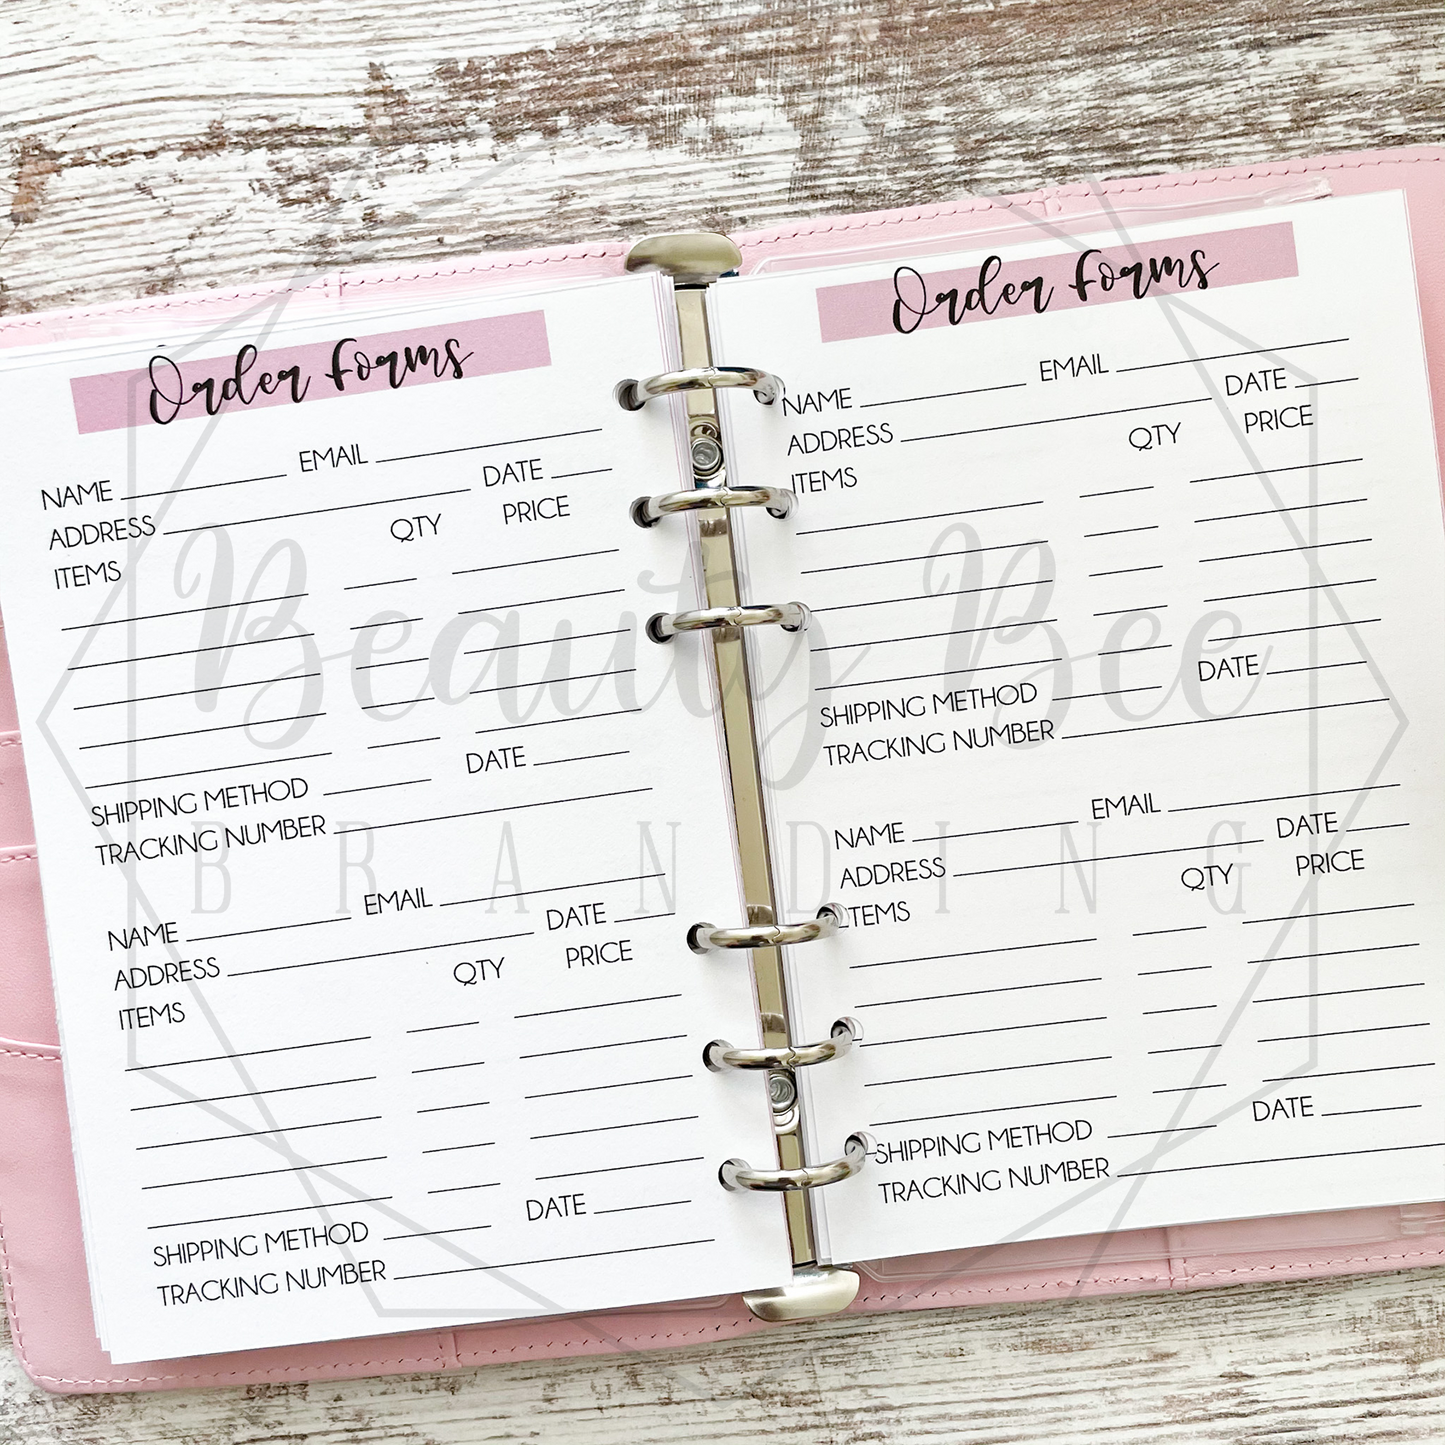 Order Forms
NAME EMAIL
ADDRESS DATE
ITEMS QTY PRICE
SHIPPING METHOD DATE
TRACKING NUMBER
NAME EMAIL
ADDRESS DATE
ITEMS QTY PRICE
SHIPPING METHOD DATE
TRACKING NUMBER
Order Forms
NAME EMAIL
ADDRESS DATE
ITEMS QTY PRICE
SHIPPING METHOD DATE
TRACKING NUMBER
NAME EMAIL
ADDRESS DATE
ITEMS QTY PRICE
SHIPPING METHOD DATE
TRACKING NUMBER
Beauty Bee
BRANDING